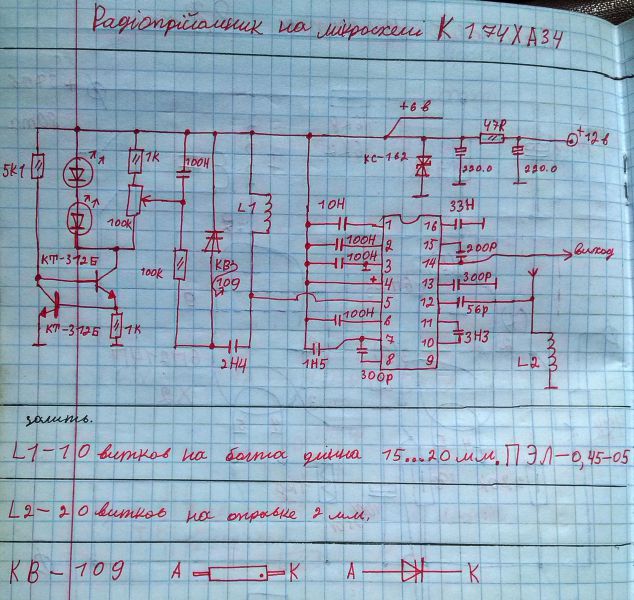 Радіоприймник на мікросхемі К 174ХА34
+6 в
47R
+12 в
КС-162
220.0
220.0
5К1
1К
100Н
100к
L1
10Н
100Н
100Н
1
2
3
4
5
6
7
8
16
15
14
13
12
11
10
9
33Н
200Р
300Р
56р
3Н3
выход
КТ-312Б
КТ-312Б
100к
КВЗ
109
1К
2Н4
100Н
1Н5
300р
L2
залить.
L1-10 витков на болта длина 15...20 мм. ПЭЛ-0,45-05
L2-20 витков на оправке 2 мм.
КВ-109 А К А К